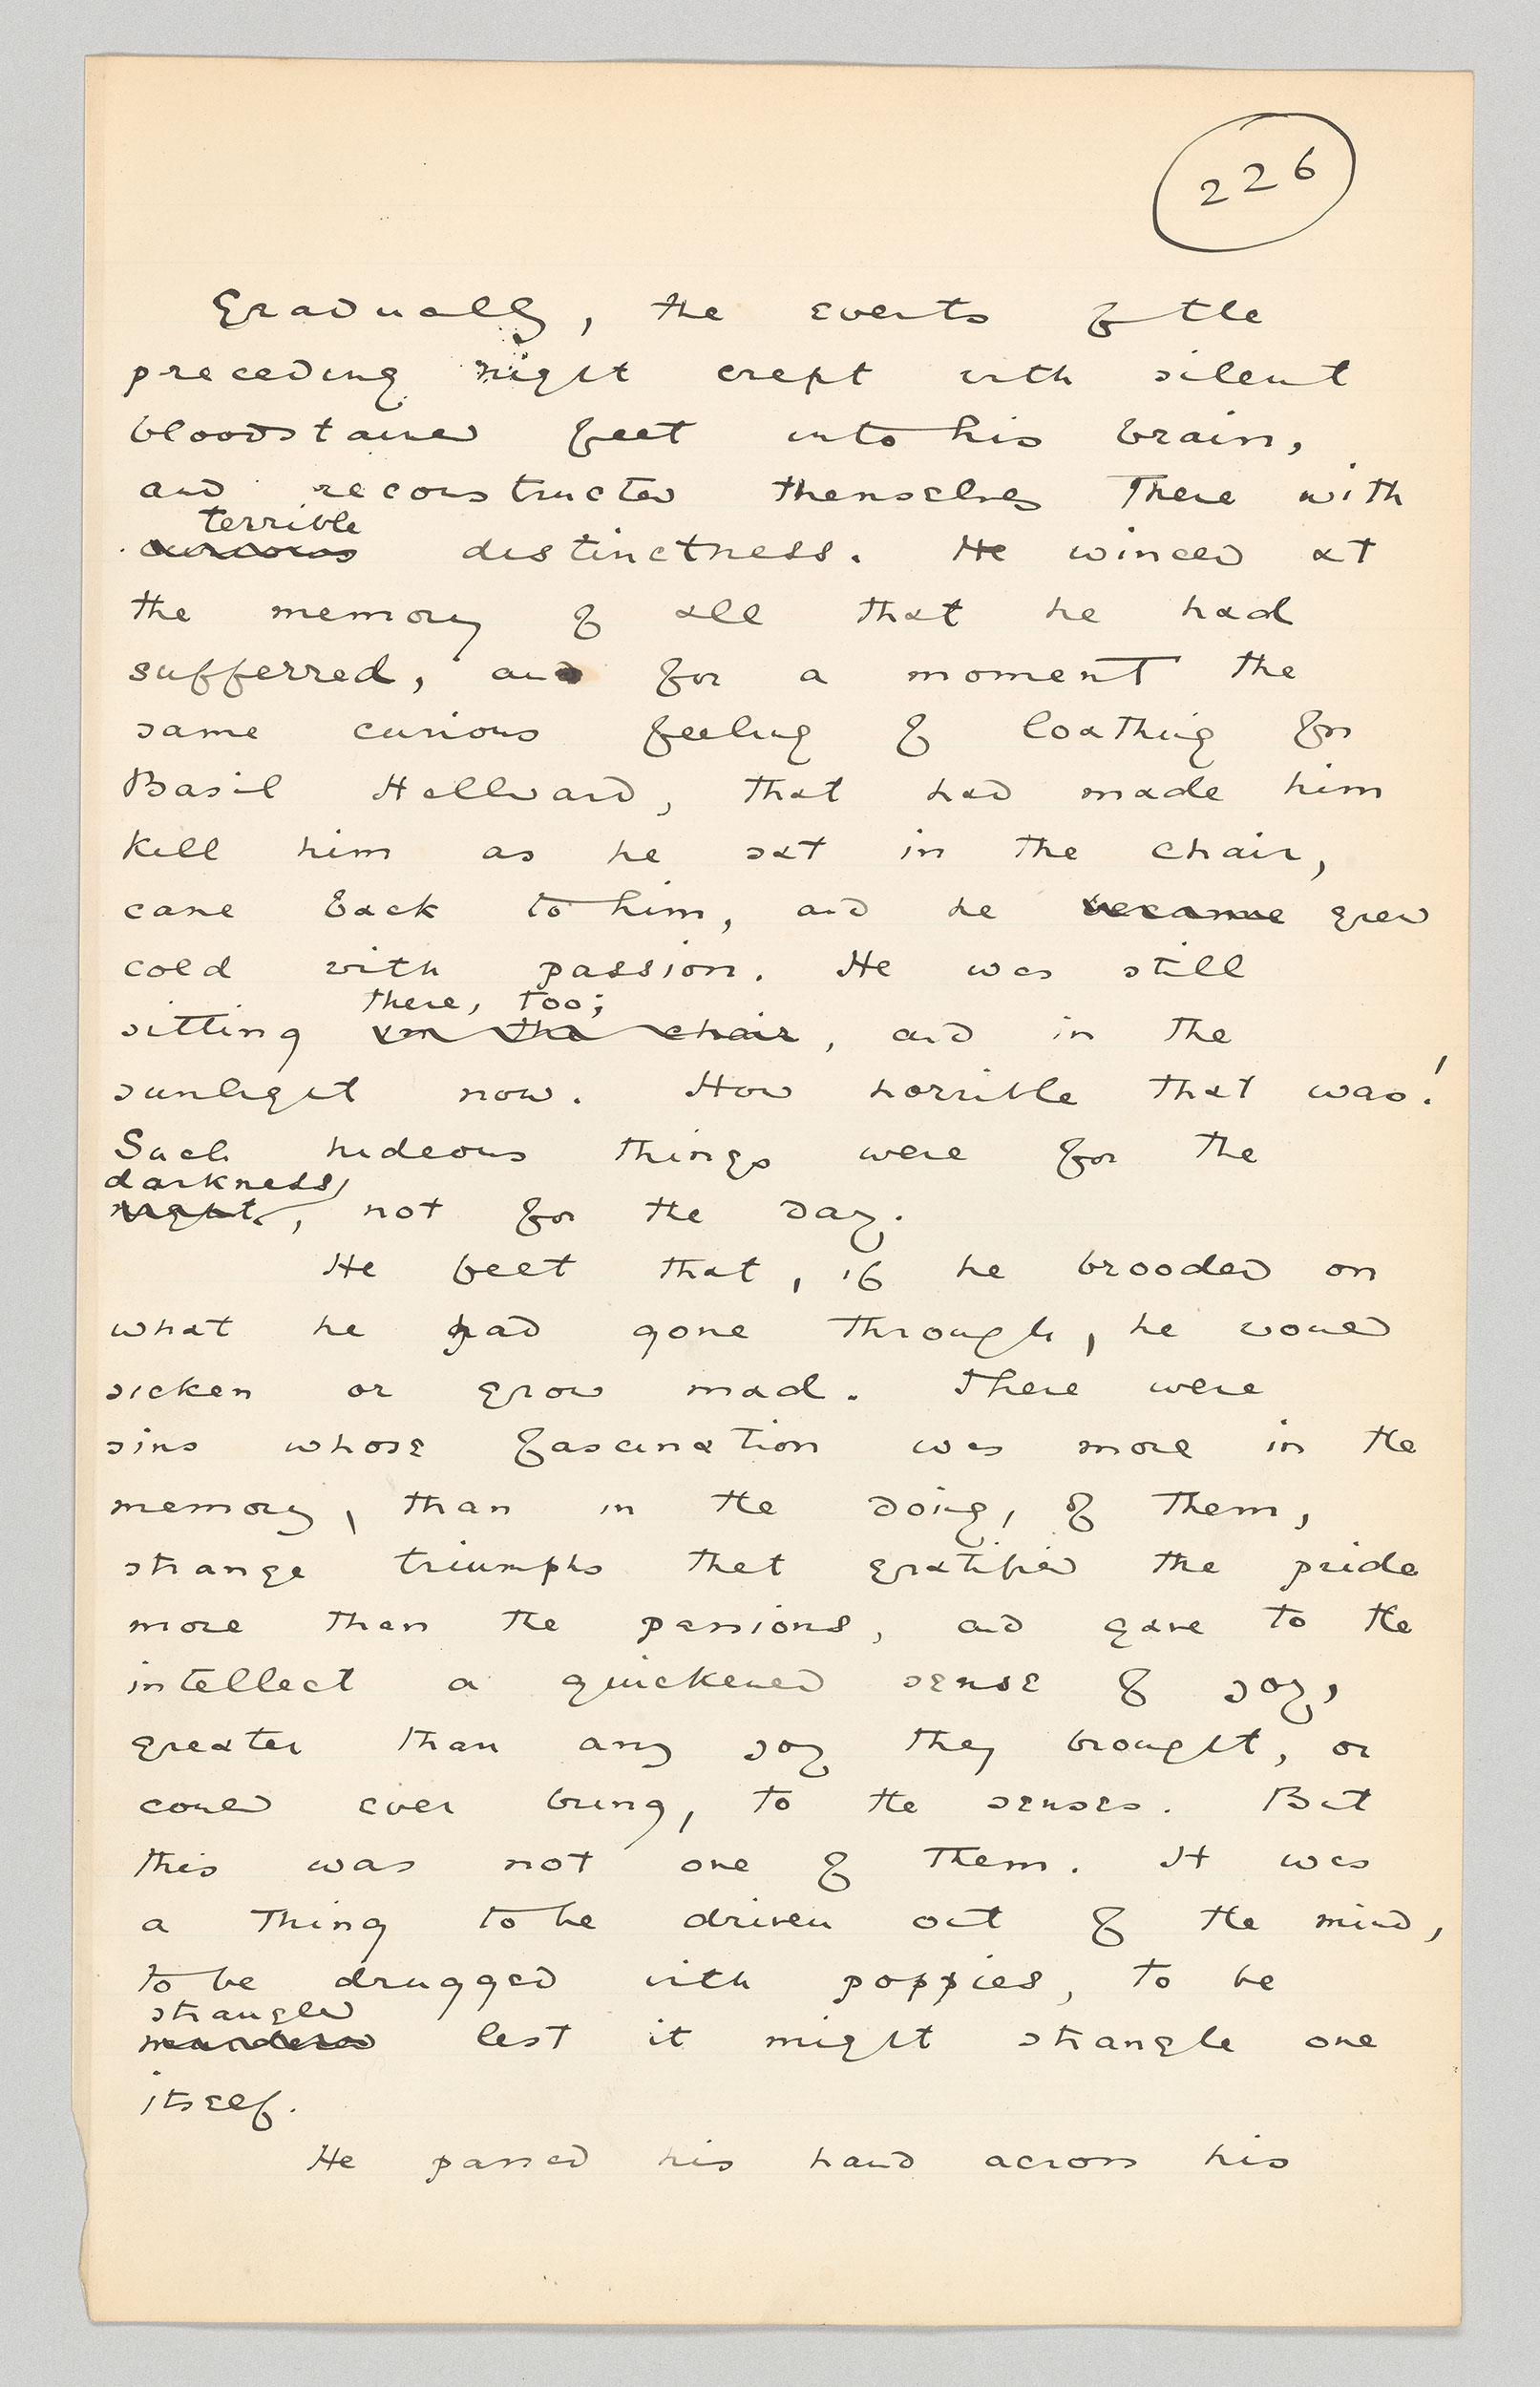 226
Gradually, the events of the
preceding night crept with silent
bloodstained feet into his brain,
and reconstructed themselves there with
terrible
curious distinctness. He winced at
the memory of all that he had
sufferred, and for a moment the
same curious feeling of loathing for
Basil Hallward, that had made him
kill him as he sat in the chair,
came back to him, and he became grew
cold with passion. He was still
there, too;
sitting in the chair, and in the
sunlight now. How horrible that was!
Such hideous things were for the
darkness,
night, not for the day.
He felt that, if he brooded on
what he had gone through, he would
sicken or grow mad. There were
sins whose fascination was more in the
memory, than in the doing, of them,
strange triumphs that gratified the pride
more than the passions, and gave to the
intellect a quickened sense of joy,
greater than any joy they brought, or
could ever bring, to the senses. But
this was not one of them. It was
a thing to be driven out of the mind,
to be drugged with poppies, to be
strangled
murdered lest it might strangle one
itself.
He passed his hand across his